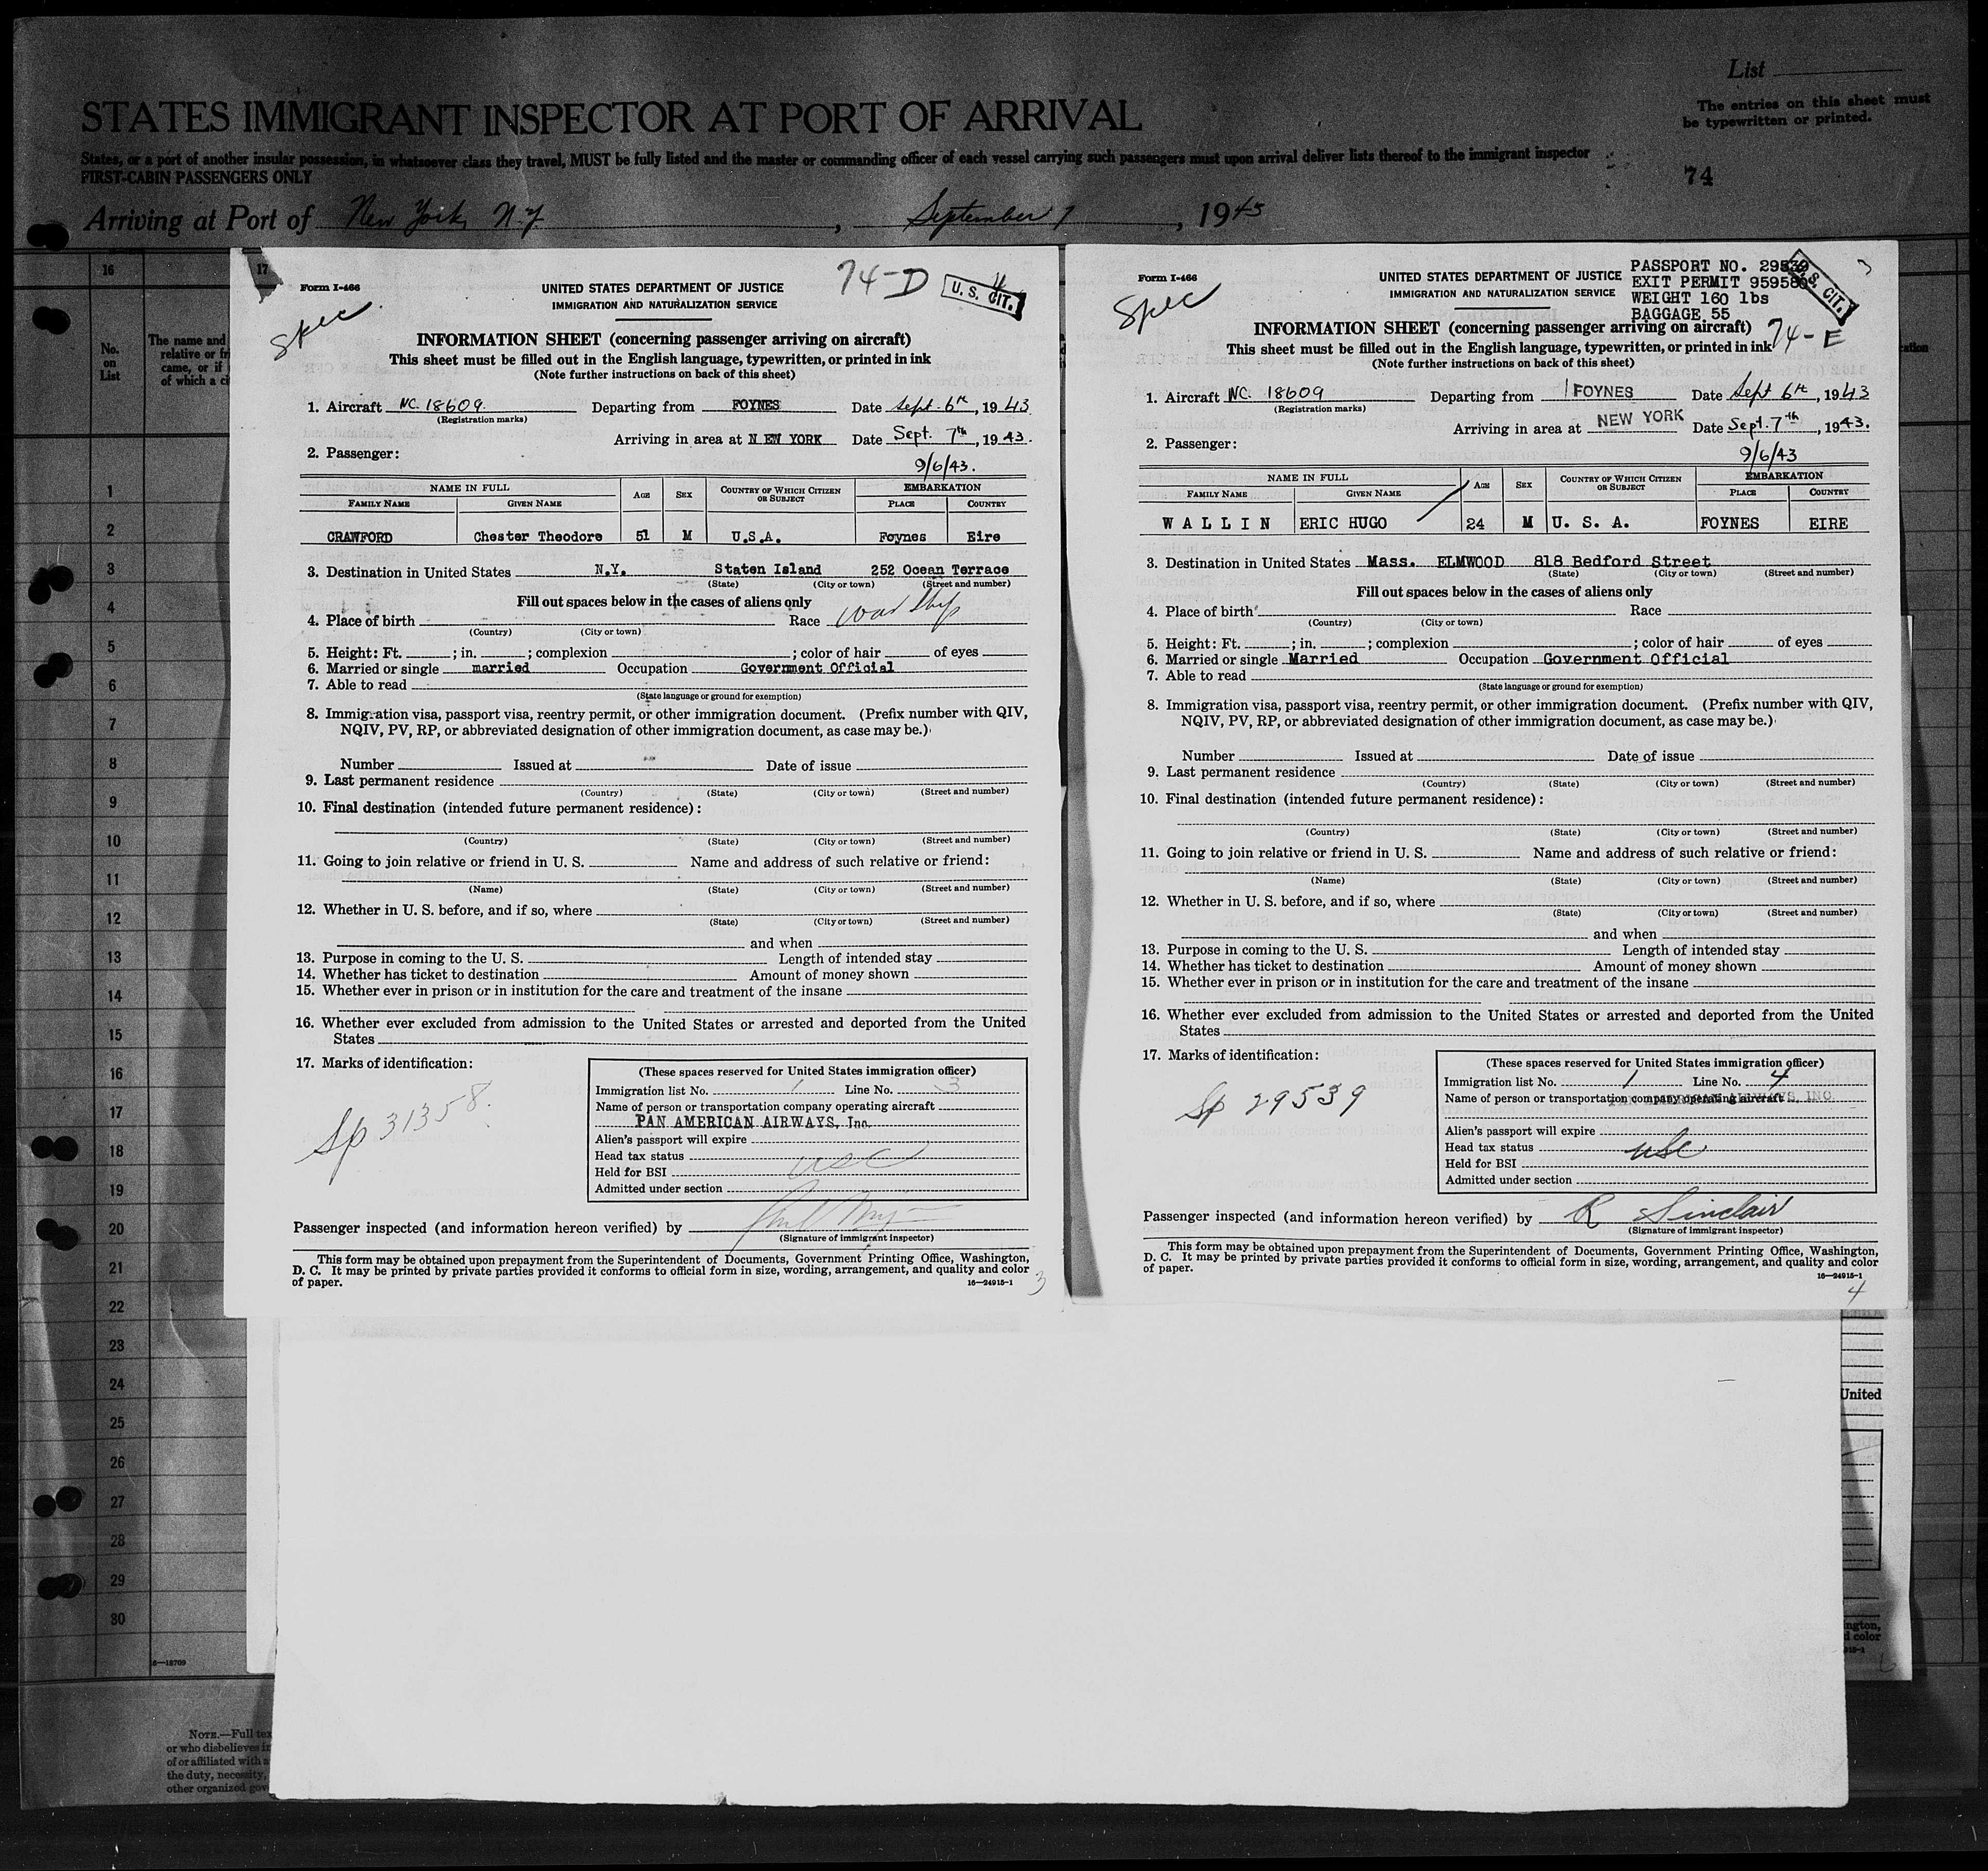 List
The entries on this sheet must
be typewritten or printed.
STATES IMMIGRANT INSPECTOR AT PORT OF ARRIVAL
States, or a port of another insular possession, in whatsoever class they travel, MUST be fully listed and the master or commanding officer of each vessel carrying such passengers must upon arrival deliver lists thereof to the immigrant inspector
FIRST-CABIN PASSENGERS ONLY
74
Arriving at Port of New York, N.Y. , September 7 , 1943
16
17
No.
on
List
The name and
relative or fr
came, or if
of which a ci
1
2
3
4
5
6
7
8
9
10
11
12
13
14
15
16
17
18
19
20
21
22
23
24
25
26
27
28
29
30
NOTE.—Full tex
or who disbelieves in
of or affiliated with a
the duty, necessity,
other organized gov
Form I-466
UNITED STATES DEPARTMENT OF JUSTICE
IMMIGRATION AND NATURALIZATION SERVICE
74-D
U. S. CIT.
Spec
INFORMATION SHEET (concerning passenger arriving on aircraft)
This sheet must be filled out in the English language, typewritten, or printed in ink
(Note further instructions on back of this sheet)
1. Aircraft NC. 18609. Departing from FOYNES Date Sept. 6th, 1943
(Registration marks)
Arriving in area at NEW YORK Date Sept. 7th, 1943.
2. Passenger:
9/6/43.
NAME IN FULL AGE SEX COUNTRY OF WHICH CITIZEN OR SUBJECT EMBARKATION
FAMILY NAME GIVEN NAME PLACE COUNTRY
CRAWFORD Chester Theodore 51 M U.S.A. Foynes Eire
3. Destination in United States N.Y. Staten Island 252 Ocean Terrace
(State) (City or town) (Street and number)
Fill out spaces below in the cases of aliens only
4. Place of birth Race War Ship
(Country) (City or town)
5. Height: Ft. ; in. ; complexion ; color of hair of eyes
6. Married or single married Occupation Government Official
7. Able to read
(State language or ground for exemption)
8. Immigration visa, passport visa, reentry permit, or other immigration document. (Prefix number with QIV,
NQIV, PV, RP, or abbreviated designation of other immigration document, as case may be.)
Number Issued at Date of issue
9. Last permanent residence
(Country) (State) (City or town) (Street and number)
10. Final destination (intended future permanent residence):
(Country) (State) (City or town) (Street and number)
11. Going to join relative or friend in U. S. Name and address of such relative or friend:
(Name) (State) (City or town) (Street and number)
12. Whether in U. S. before, and if so, where
(State) (City or town) (Street and number)
and when
13. Purpose in coming to the U. S. Length of intended stay
14. Whether has ticket to destination Amount of money shown
15. Whether ever in prison or in institution for the care and treatment of the insane
16. Whether ever excluded from admission to the United States or arrested and deported from the United
States
17. Marks of identification:
Sp 31358.
(These spaces reserved for United States immigration officer)
Immigration list No. 1 Line No. 3
Name of person or transportation company operating aircraft
PAN AMERICAN AIRWAYS, Inc.
Alien's passport will expire
Head tax status usc
Held for BSI
Admitted under section
Passenger inspected (and information hereon verified) by
(Signature of immigrant inspector)
This form may be obtained upon prepayment from the Superintendent of Documents, Government Printing Office, Washington,
D. C. It may be printed by private parties provided it conforms to official form in size, wording, arrangement, and quality and color
of paper.
16—24915-1
3
Form I-466
UNITED STATES DEPARTMENT OF JUSTICE
IMMIGRATION AND NATURALIZATION SERVICE
PASSPORT NO. 29539
EXIT PERMIT 959580
WEIGHT 160 lbs
BAGGAGE 55
U. S. CIT.
Spec
74-E
INFORMATION SHEET (concerning passenger arriving on aircraft)
This sheet must be filled out in the English language, typewritten, or printed in ink
(Note further instructions on back of this sheet)
1. Aircraft NC. 18609 Departing from FOYNES Date Sept 6th, 1943
(Registration marks)
Arriving in area at NEW YORK Date Sept. 7th, 1943.
2. Passenger:
9/6/43
NAME IN FULL AGE SEX COUNTRY OF WHICH CITIZEN OR SUBJECT EMBARKATION
FAMILY NAME GIVEN NAME PLACE COUNTRY
WALLIN ERIC HUGO 24 M U. S. A. FOYNES EIRE
3. Destination in United States Mass. ELMWOOD 818 Bedford Street
(State) (City or town) (Street and number)
Fill out spaces below in the cases of aliens only
4. Place of birth Race
(Country) (City or town)
5. Height: Ft. ; in. ; complexion ; color of hair of eyes
6. Married or single Married Occupation Government Official
7. Able to read
(State language or ground for exemption)
8. Immigration visa, passport visa, reentry permit, or other immigration document. (Prefix number with QIV,
NQIV, PV, RP, or abbreviated designation of other immigration document, as case may be.)
Number Issued at Date of issue
9. Last permanent residence
(Country) (State) (City or town) (Street and number)
10. Final destination (intended future permanent residence):
(Country) (State) (City or town) (Street and number)
11. Going to join relative or friend in U. S. Name and address of such relative or friend:
(Name) (State) (City or town) (Street and number)
12. Whether in U. S. before, and if so, where
(State) (City or town) (Street and number)
and when
13. Purpose in coming to the U. S. Length of intended stay
14. Whether has ticket to destination Amount of money shown
15. Whether ever in prison or in institution for the care and treatment of the insane
16. Whether ever excluded from admission to the United States or arrested and deported from the United
States
17. Marks of identification:
Sp 29539
(These spaces reserved for United States immigration officer)
Immigration list No. 1 Line No. 4
Name of person or transportation company operating aircraft PAN AMERICAN AIRWAYS, INC.
Alien's passport will expire
Head tax status usc
Held for BSI
Admitted under section
Passenger inspected (and information hereon verified) by R Sinclair
(Signature of immigrant inspector)
This form may be obtained upon prepayment from the Superintendent of Documents, Government Printing Office, Washington,
D. C. It may be printed by private parties provided it conforms to official form in size, wording, arrangement, and quality and color
of paper.
16—24915-1
4
United
ngton,
d color